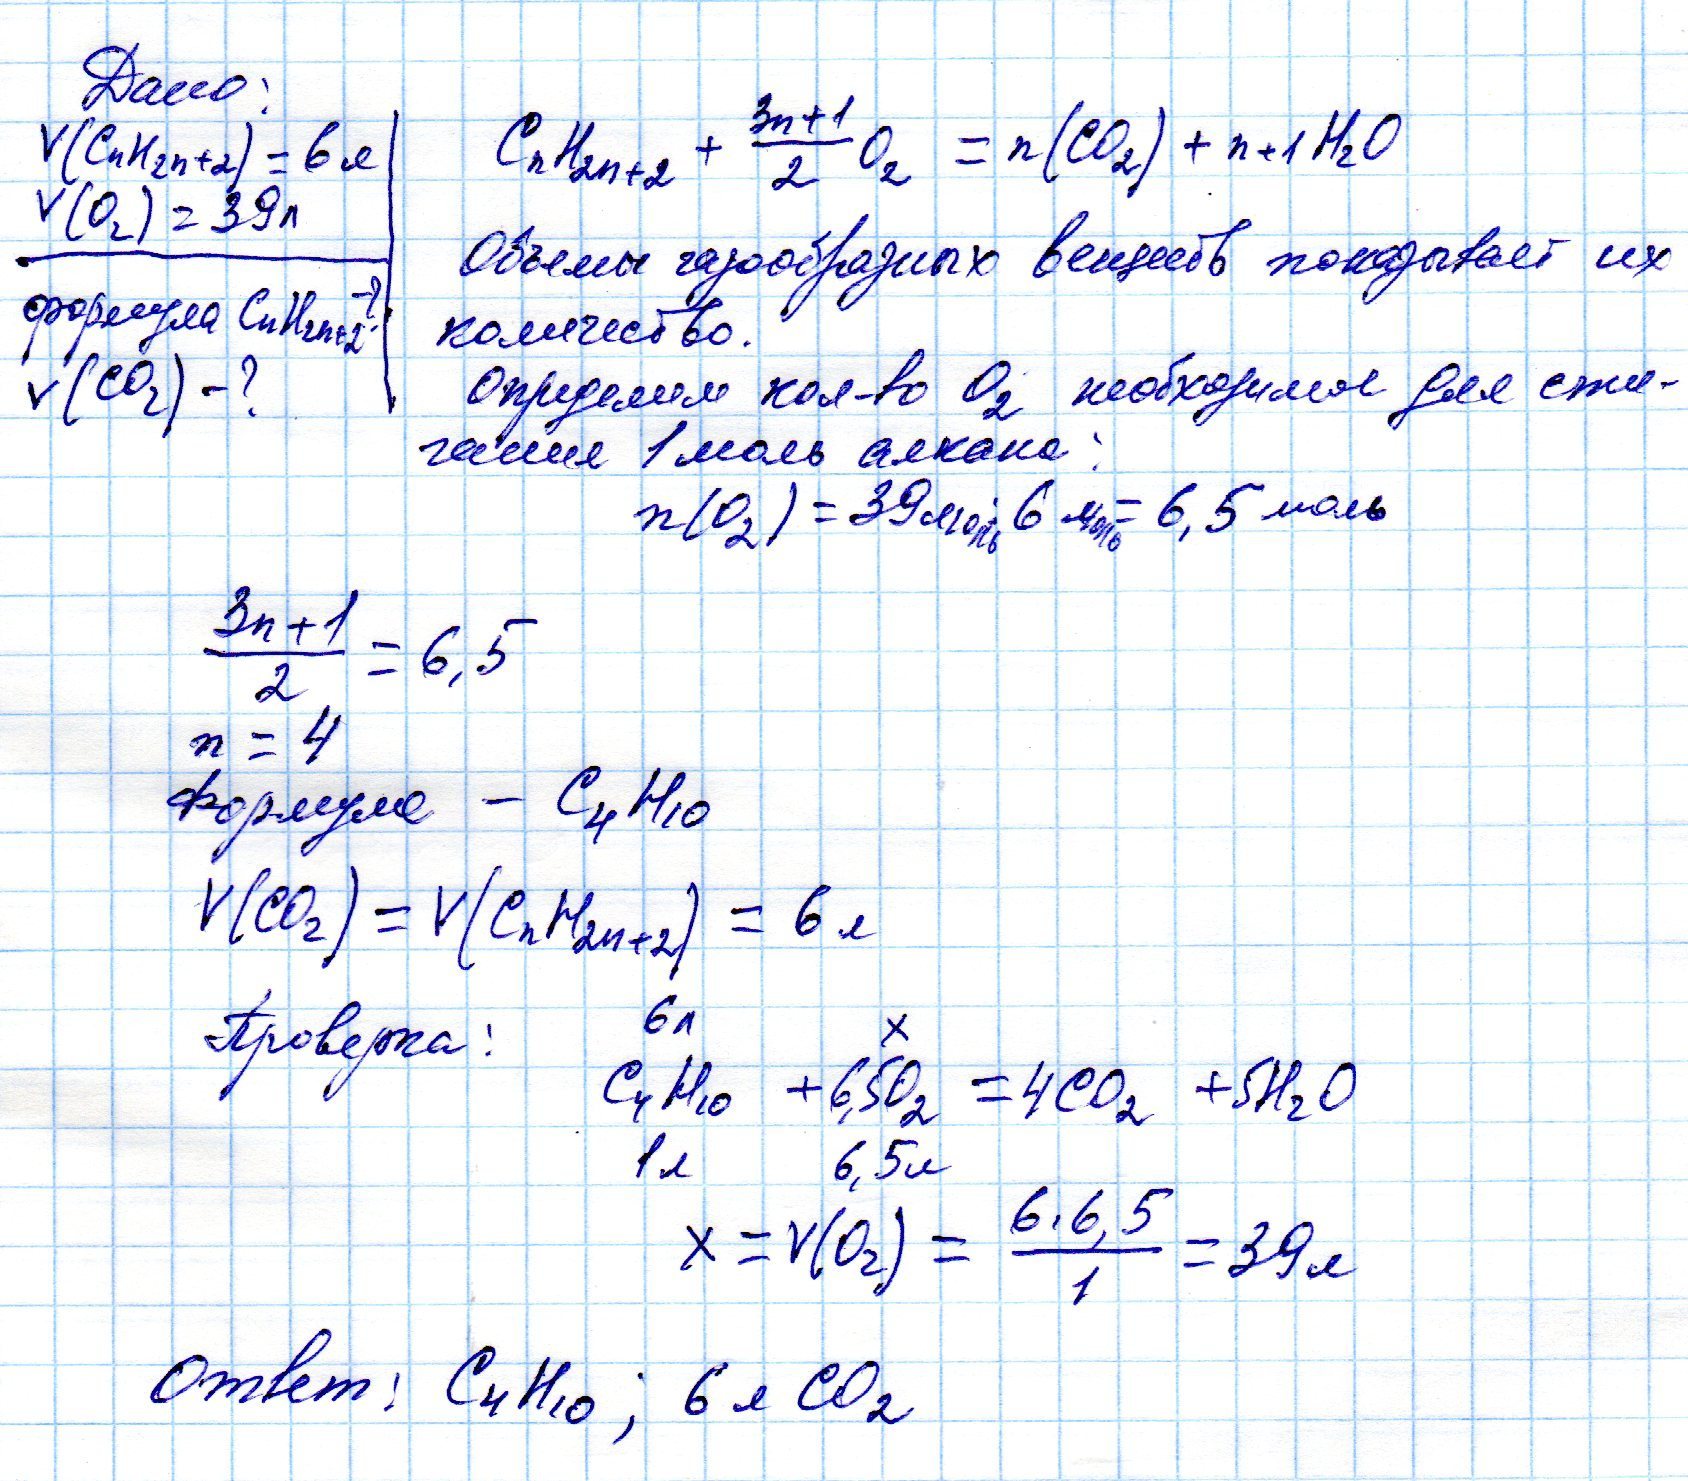 Дано:
V(CnH2n+2) = 6 л
V(O2) = 39 л
формула CnH2n+2 -?
V(CO2) - ?
CnH2n+2 + 3n+1/2 O2 = n(CO2) + n+1 H2O
Объемы газообразных веществ показывает их
количество.
Определим кол-во O2 необходимое для сжи-
гания 1 моль алкана:
n(O2) = 39 моль : 6 моль = 6,5 моль
3n+1/2 = 6,5
n = 4
Формула – C4H10
V(CO2) = V(CnH2n+2) = 6 л
Проверка:
6л x
C4H10 + 6,5O2 = 4CO2 + 5H2O
1л 6,5л
x = V(O2) = 6·6,5/1 = 39 л
Ответ: C4H10; 6 л CO2